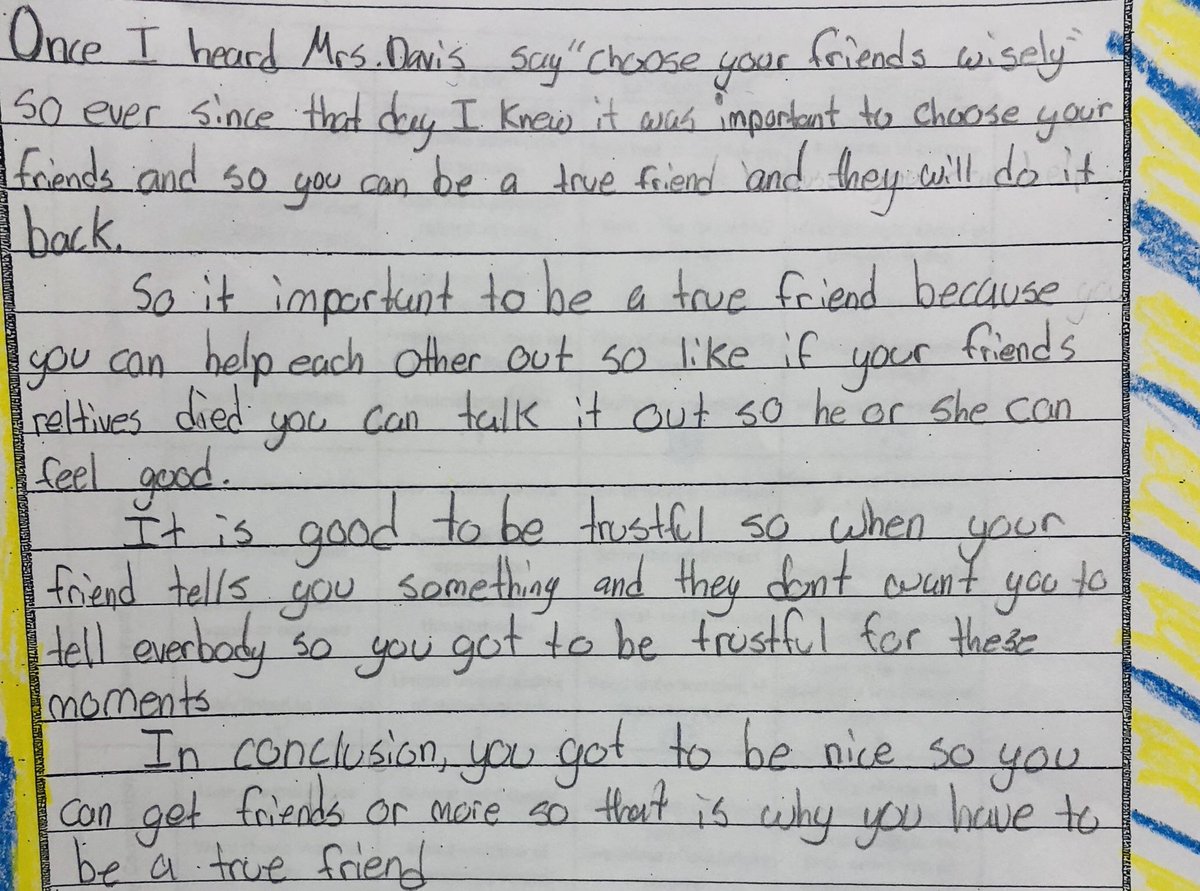 Once I heard Mrs. Davis say "choose your friends wisely"
so ever since that day I knew it was important to choose your
friends and so you can be a true friend and they will do it
back.
So it important to be a true friend because
you can help each other out so like if your friends
reltives died you can talk it out so he or she can
feel good.
It is good to be trustful so when your
friend tells you something and they dont want you to
tell everbody so you got to be trustful for these
moments
In conclusion, you got to be nice so you
can get friends or more so that is why you have to
be a true friend